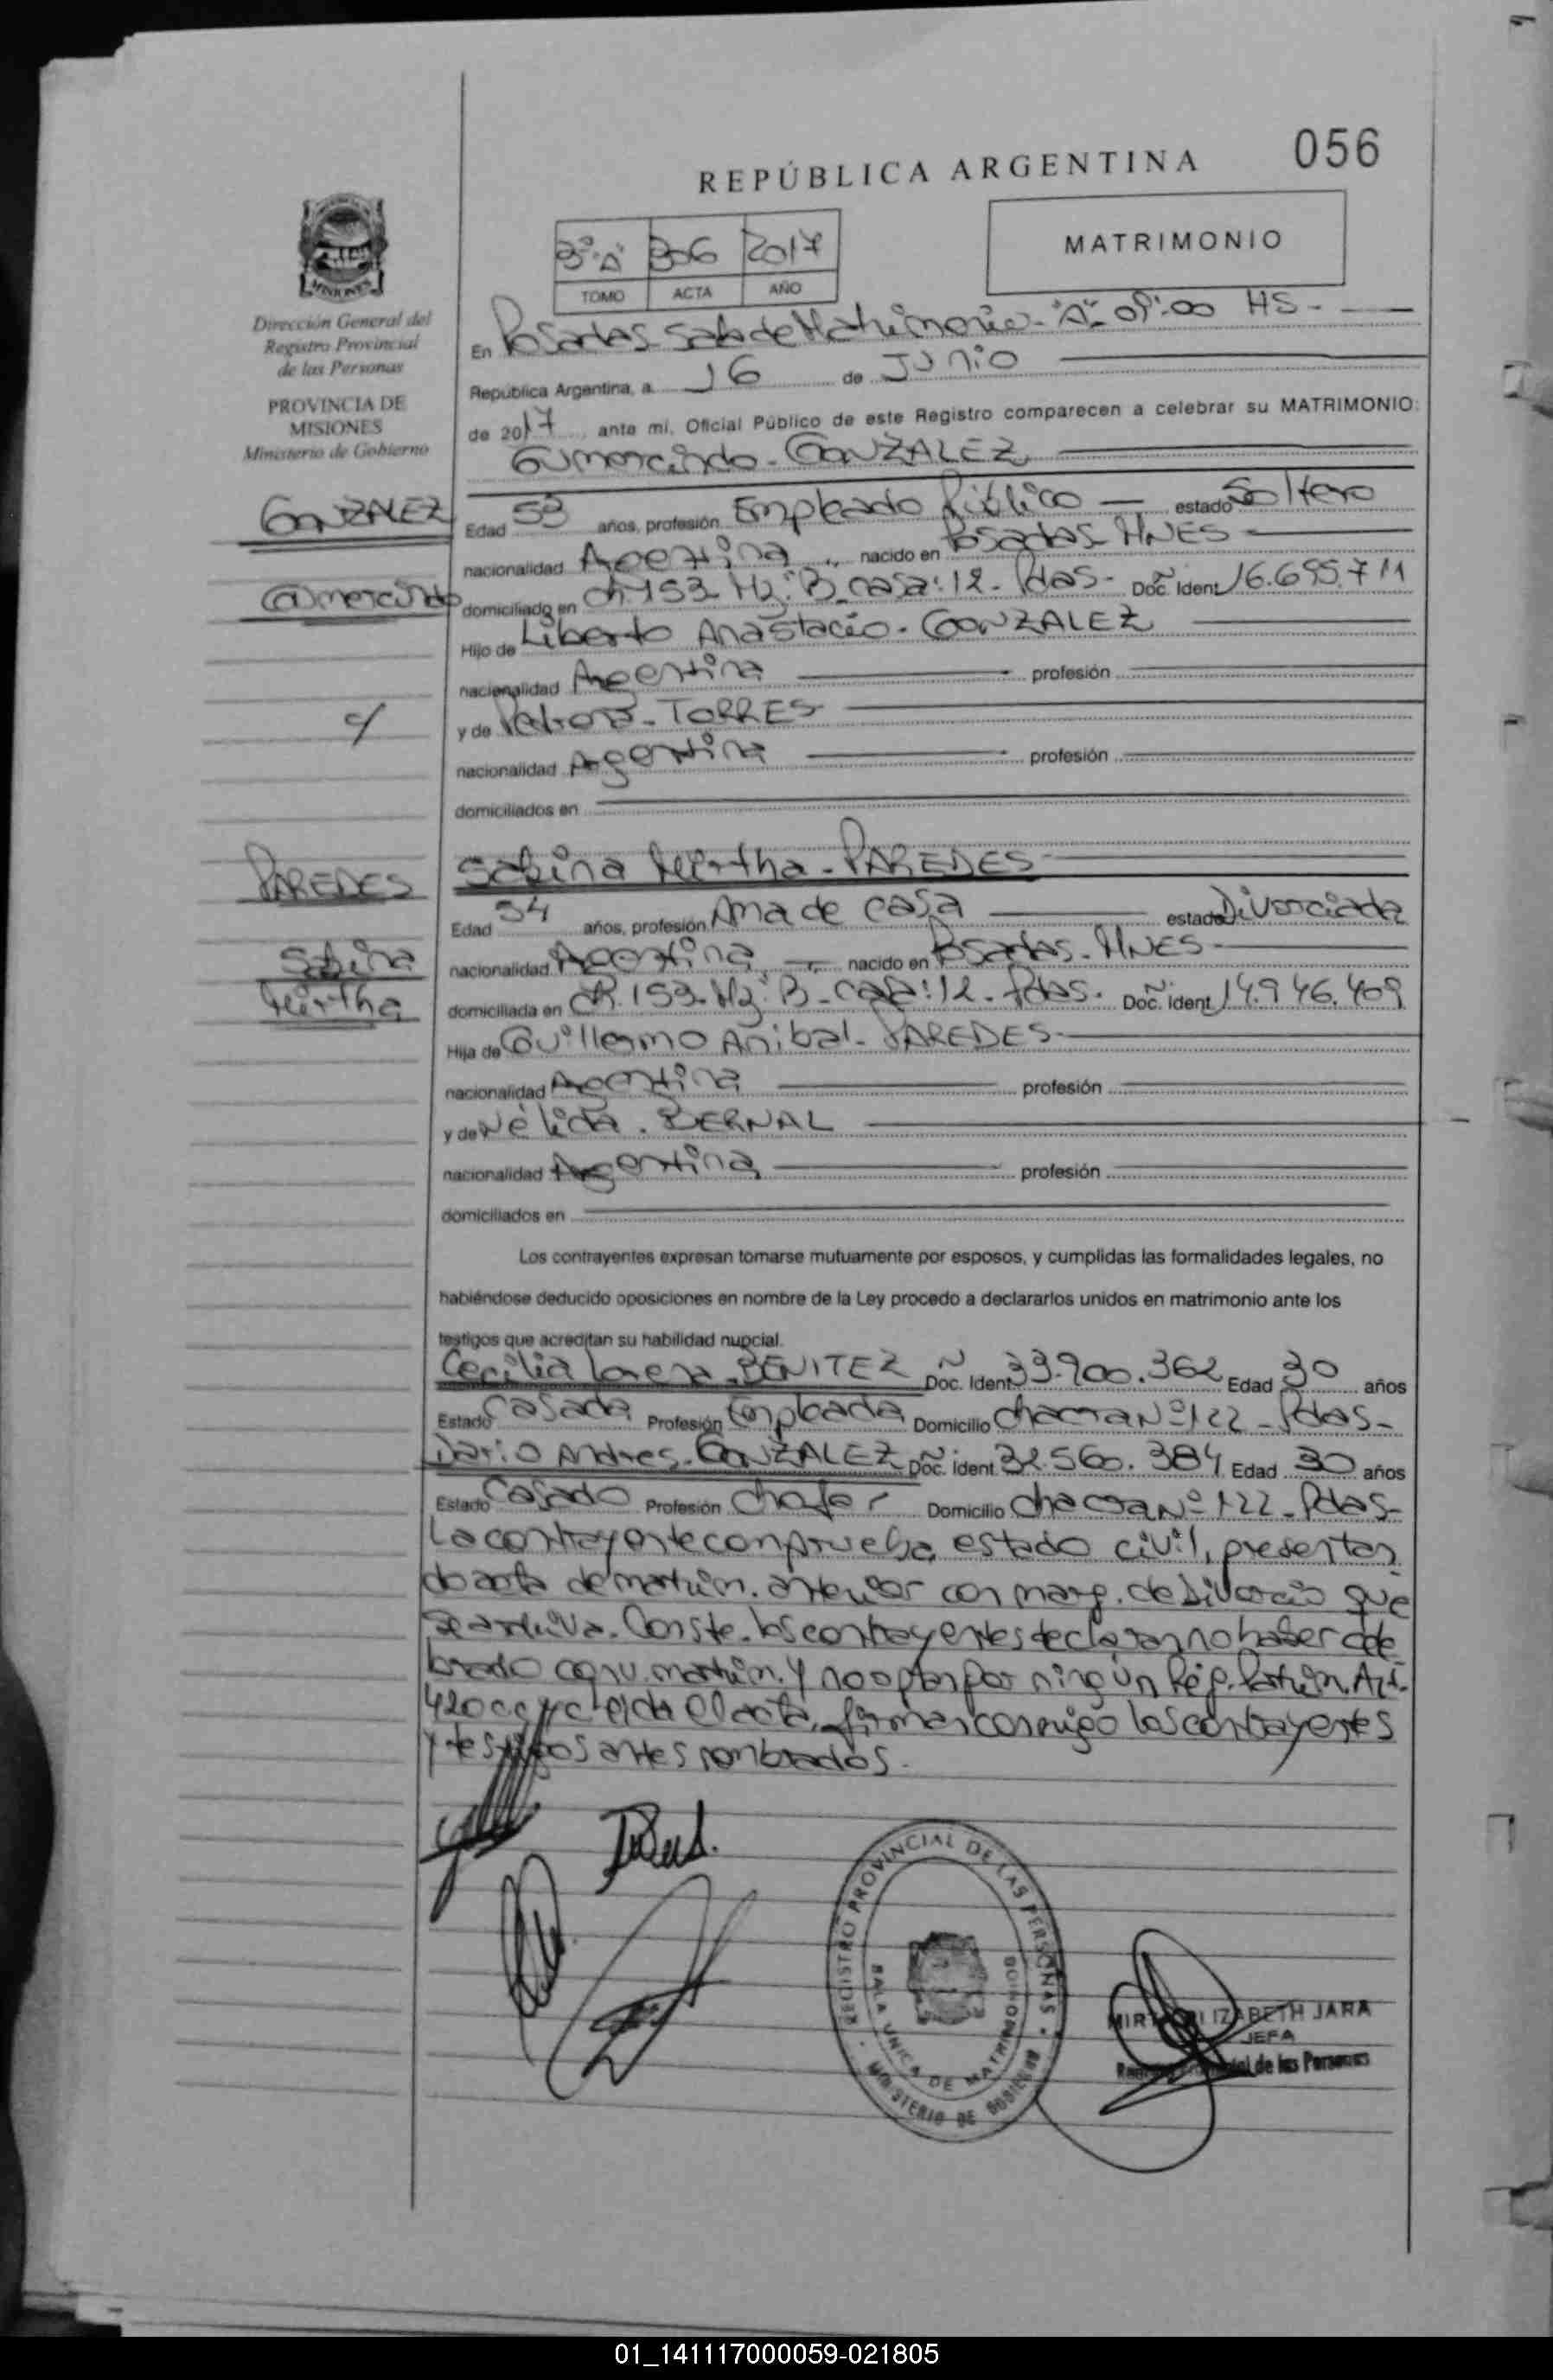 056
REPÚBLICA ARGENTINA
3º "A" 306 2017
TOMO ACTA AÑO
MATRIMONIO
MISIONES
Dirección General del
Registro Provincial
de las Personas
PROVINCIA DE
MISIONES
Ministerio de Gobierno
En Posadas Sala de Matrimonio - "A" 09:00 HS -
República Argentina, a 16 de Junio
de 2017, ante mi, Oficial Público de este Registro comparecen a celebrar su MATRIMONIO:
Gumercindo - GONZALEZ
GONZALEZ
Gumercindo
Edad 53 años, profesión Empleado Público estado Soltero
nacionalidad Argentina nacido en Posadas - MNES
domiciliado en Ch 153 Mz: B casa: 12 - Pdas - Doc. Ident 16.695.711
Hijo de Liberto Anastacio - GONZALEZ
nacionalidad Argentina profesión
c/
y de TORRES
nacionalidad Argentina profesión
domiciliados en
PAREDES
Sabina
Mirtha
Sabina Mirtha - PAREDES
Edad 54 años, profesión Ama de casa estado Divorciada
nacionalidad Argentina nacido en Posadas - MNES
domiciliada en Ch. 153 Mz: B - casa: 12 - Pdas. Doc. Ident 14.946.409
Hija de Guillermo Anibal - PAREDES
nacionalidad Argentina profesión
y de Nélida . BERNAL
nacionalidad Argentina profesión
domiciliados en
Los contrayentes expresan tomarse mutuamente por esposos, y cumplidas las formalidades legales, no
habiéndose deducido oposiciones en nombre de la Ley procedo a declararlos unidos en matrimonio ante los
testigos que acreditan su habilidad nupcial.
Cecilia Lorena - BENITEZ Doc. Ident 33.900.362 Edad 30 años
Estado Casada Profesión Empleada Domicilio chacra Nº 122 - Pdas -
Dario Andres - GONZALEZ Doc. Ident. 32.560.384 Edad 30 años
Estado Casado Profesión Chofer Domicilio chacra Nº 122 - Pdas -
La contrayente comprueba estado civil, presentan
do acta de matrim. anterior con marg. de Divorcio que
se archiva. Conste. los contrayentes declaran no haber cele
brado conv. matrim. y no optan por ningún Rég. Patrim. Art.
420 ccyc leida el acta, firman conmigo los contrayentes
y testigos antes nombrados.
REGISTRO PROVINCIAL DE LAS PERSONAS
SALA UNICA DE MATRIMONIOS
MINISTERIO DE GOBIERNO
ELIZABETH JARA
JEFA
de las Personas
01_141117000059-021805